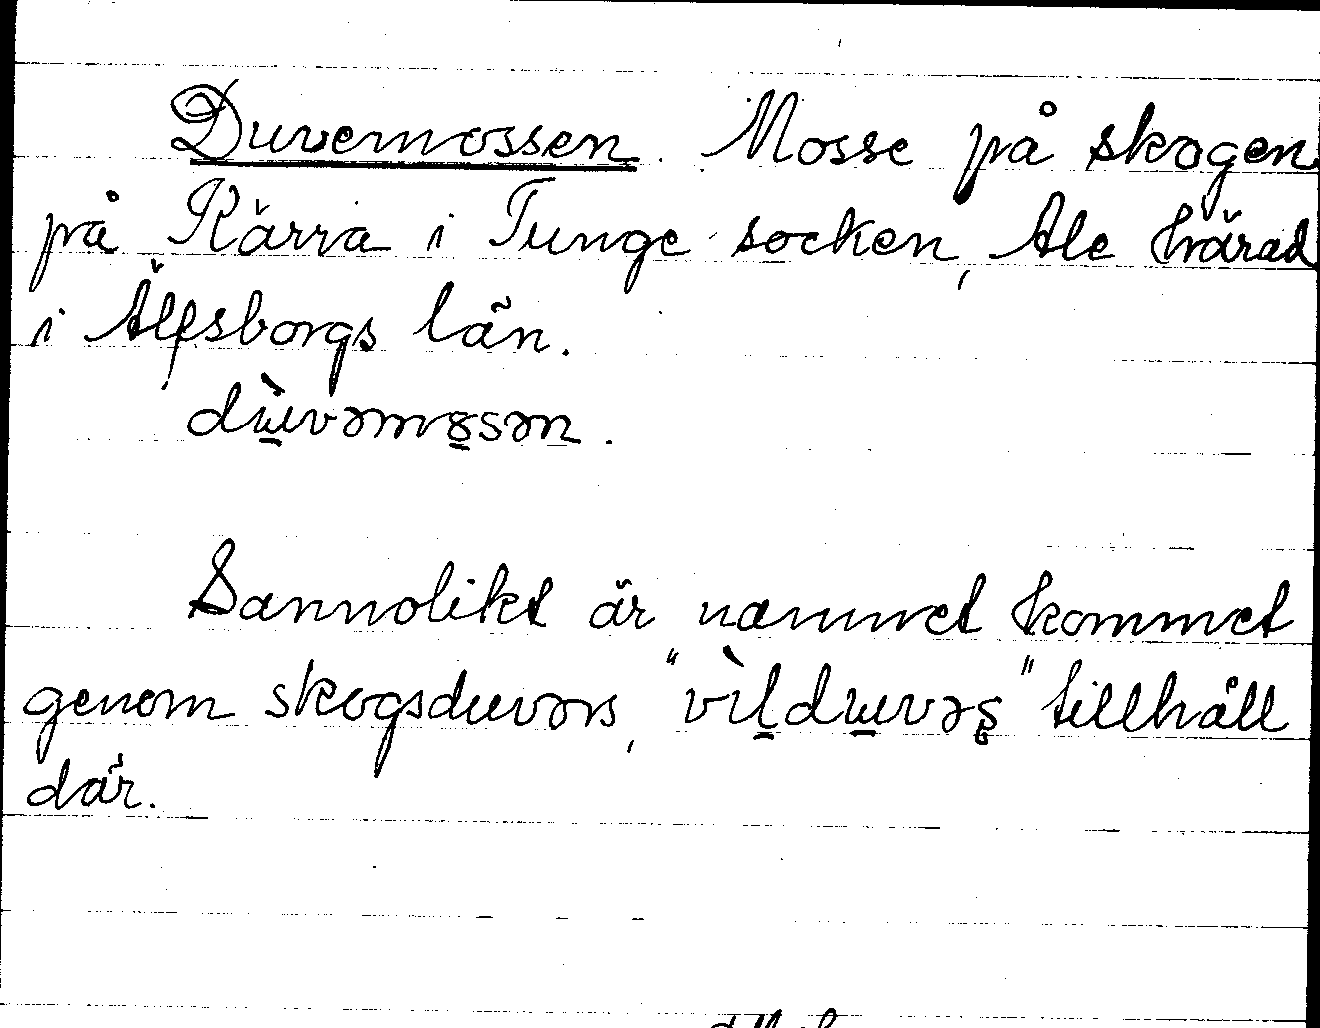 Duvemossen. Mosse på skogen
på Kärra i Tunge socken, Ale härad
i Älfsborgs län.
dɯ̱̀vəmo̱sən.
Sannolikt är namnet kommet
genom skogsduvors, "vìḻdɯ̱vəʂ" tillhåll
där.